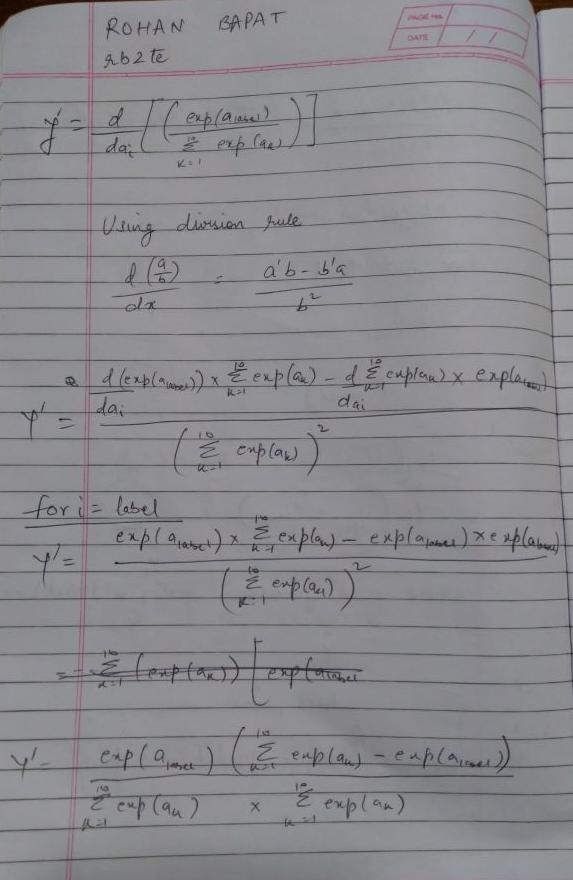 ROHAN BAPAT
rb2te
PAGE No.
DATE / /
y' = d/da_i [ ( exp(a_label) / Σ_{k=1}^{10} exp(a_k) ) ]
Using division rule
d(a/b)/dx = (a'b - b'a) / b²
y' = ( d(exp(a_label))/da_i × Σ_{k=1}^{10} exp(a_k) - d/da_i Σ_{k=1}^{10} exp(a_k) × exp(a_label) ) / ( Σ_{k=1}^{10} exp(a_k) )²
for i = label
y' = ( exp(a_label) × Σ_{k=1}^{10} exp(a_k) - exp(a_label) × exp(a_label) ) / ( Σ_{k=1}^{10} exp(a_k) )²
= Σ_{k=1}^{10} (exp(a_k)) [ exp(a_label
y' = exp(a_label) ( Σ_{k=1}^{10} exp(a_k) - exp(a_label) ) / Σ_{k=1}^{10} exp(a_k) × Σ_{k=1}^{10} exp(a_k)